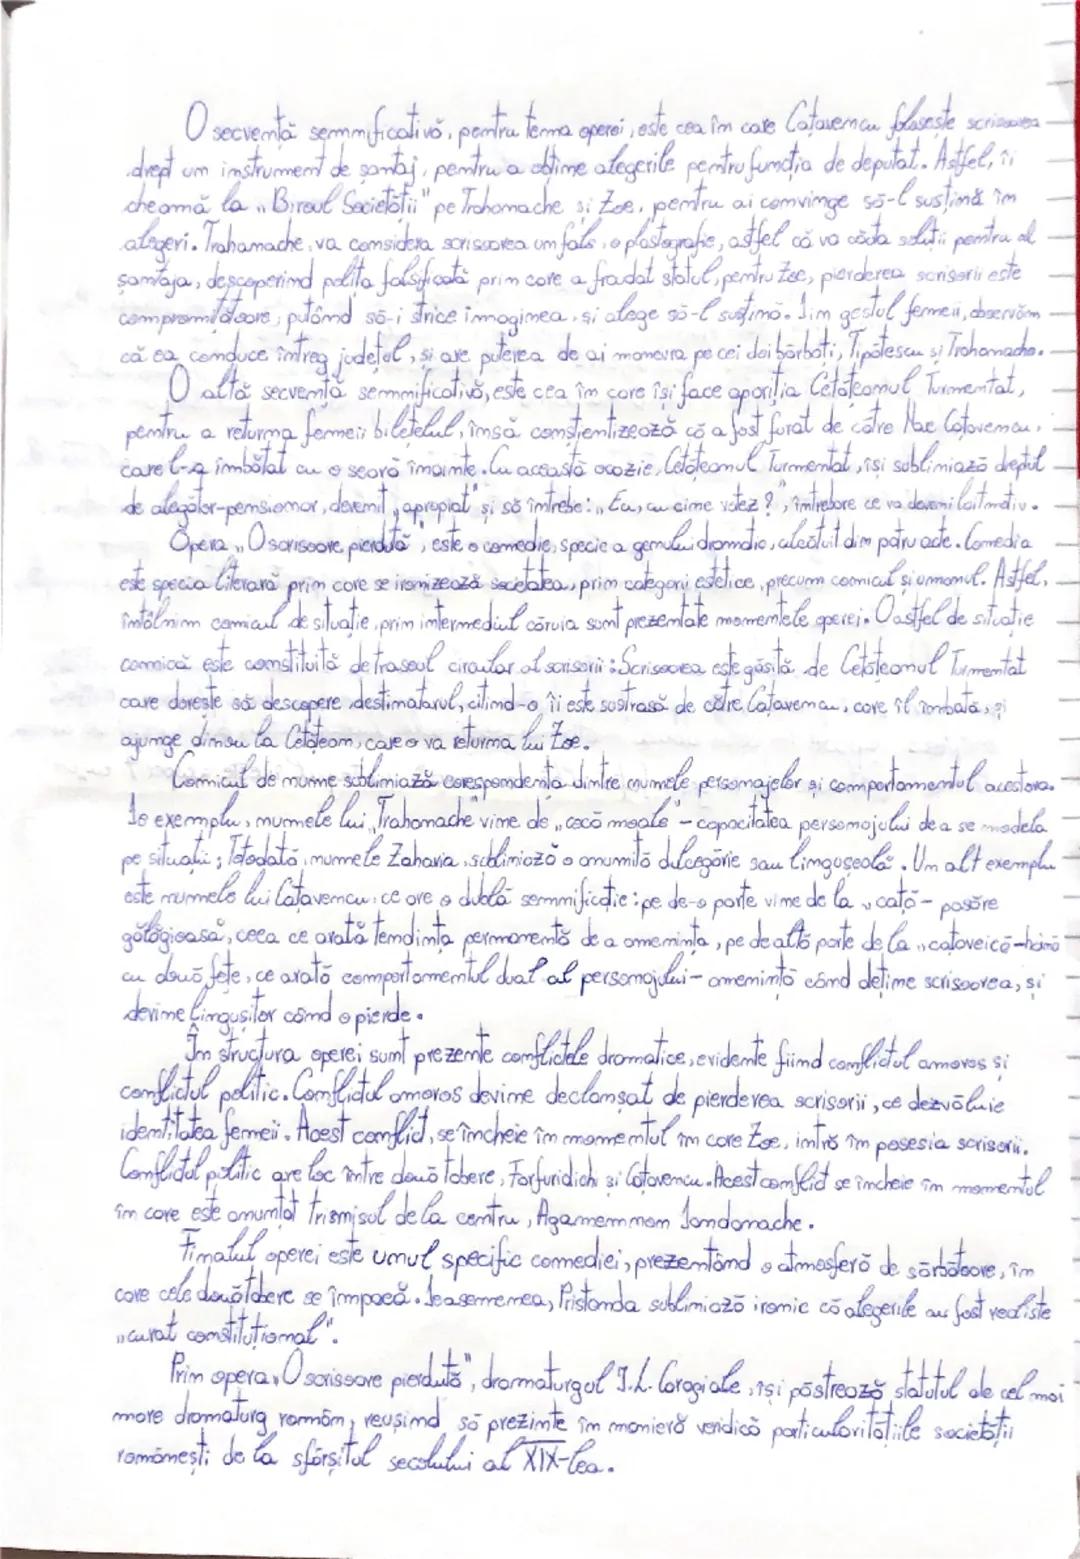 O secvență semnificativă, pentru tema operei, este cea în care Cațavencu folosește scrisoarea
drept un instrument de șantaj, pentru a obține alegerile pentru funcția de deputat. Astfel, îi
cheamă la „Biroul Societății" pe Trahanache și Zoe, pentru ai convinge să-l susțină în
alegeri. Trahanache, va considera scrisoarea un fals, o plastografie, astfel că va căuta soluții pentru al
șantaja, descoperind polița falsificată prin care a fraudat statul, pentru Zoe, pierderea scrisorii este
compromițătoare, putând să-i strice imaginea, și alege să-l susțină. Din gestul femeii, observăm
că ea conduce întreg județul, și are puterea de ai manevra pe cei doi bărbați, Tipătescu și Trahanache.
O altă secvență semnificativă, este cea în care își face apariția Cetățeanul Turmentat,
pentru a returna femeii bilețelul, însă conștientizează că a fost furat de către Nae Cațavencu,
care l-a îmbătat cu o seară înainte. Cu această ocazie, Cetățeanul Turmentat, își subliniază dreptul
de alegător-pensionar, devenit „apropiat" și să întrebe: „Eu, cu cine votez?", întrebare ce va deveni laitmotiv.
Opera „O scrisoare pierdută", este o comedie, specie a genului dramatic, alcătuit din patru acte. Comedia
este specia literară prin care se ironizează societatea, prin categorii estetice, precum comicul și umorul. Astfel,
întâlnim comicul de situație, prin intermediul căruia sunt prezentate momentele operei. O astfel de situație
comică este constituită de traseul circular al scrisorii: Scrisoarea este găsită de Cetățeanul Turmentat
care dorește să descopere destinatarul, citind-o îi este sustrasă de către Cațavencu, care îl îmbată, și
ajunge dinou la Cetățean, care o va returna lui Zoe.
Comicul de nume subliniază corespondența dintre numele personajelor și comportamentul acestora.
De exemplu, numele lui „Trahanache" vine de „cocă moale" - capacitatea personajului de a se modela
pe situații; Totodată, numele Zaharia, subliniază o anumită dulcegărie sau lingușeală. Un alt exemplu
este numele lui Cațavencu, ce are o dublă semnificație: pe de-o parte vine de la „cață - pasăre
gălăgioasă, ceea ce arată tendința permanentă de a amenința, pe de altă parte de la „cațaveică - haină
cu două fețe, ce arată comportamentul dual al personajului - amenință când deține scrisoarea, și
devine lingușitor când o pierde.
În structura operei sunt prezente conflictele dramatice, evidente fiind conflictul amoros și
conflictul politic. Conflictul amoros devine declanșat de pierderea scrisorii, ce dezvăluie
identitatea femeii. Acest conflict, se încheie în momentul în care Zoe, intră în posesia scrisorii.
Conflictul politic are loc între două tabere, Farfuridich și Cațavencu. Acest conflict se încheie în momentul
în care este anunțat trismisul de la centru, Agamemnon Dandanache.
Finalul operei este unul specific comediei, prezentând o atmosferă de sărbătoare, în
care cele două tabere se împacă. Deasemenea, Pristanda subliniază ironic că alegerile au fost realiste
„curat constituțional".
Prin opera „O scrisoare pierdută", dramaturgul I.L. Caragiale, își păstrează statutul de cel mai
mare dramaturg român, reușind să prezinte în manieră veridică particularitățiile societății
românești de la sfârșitul secolului al XIX-lea.